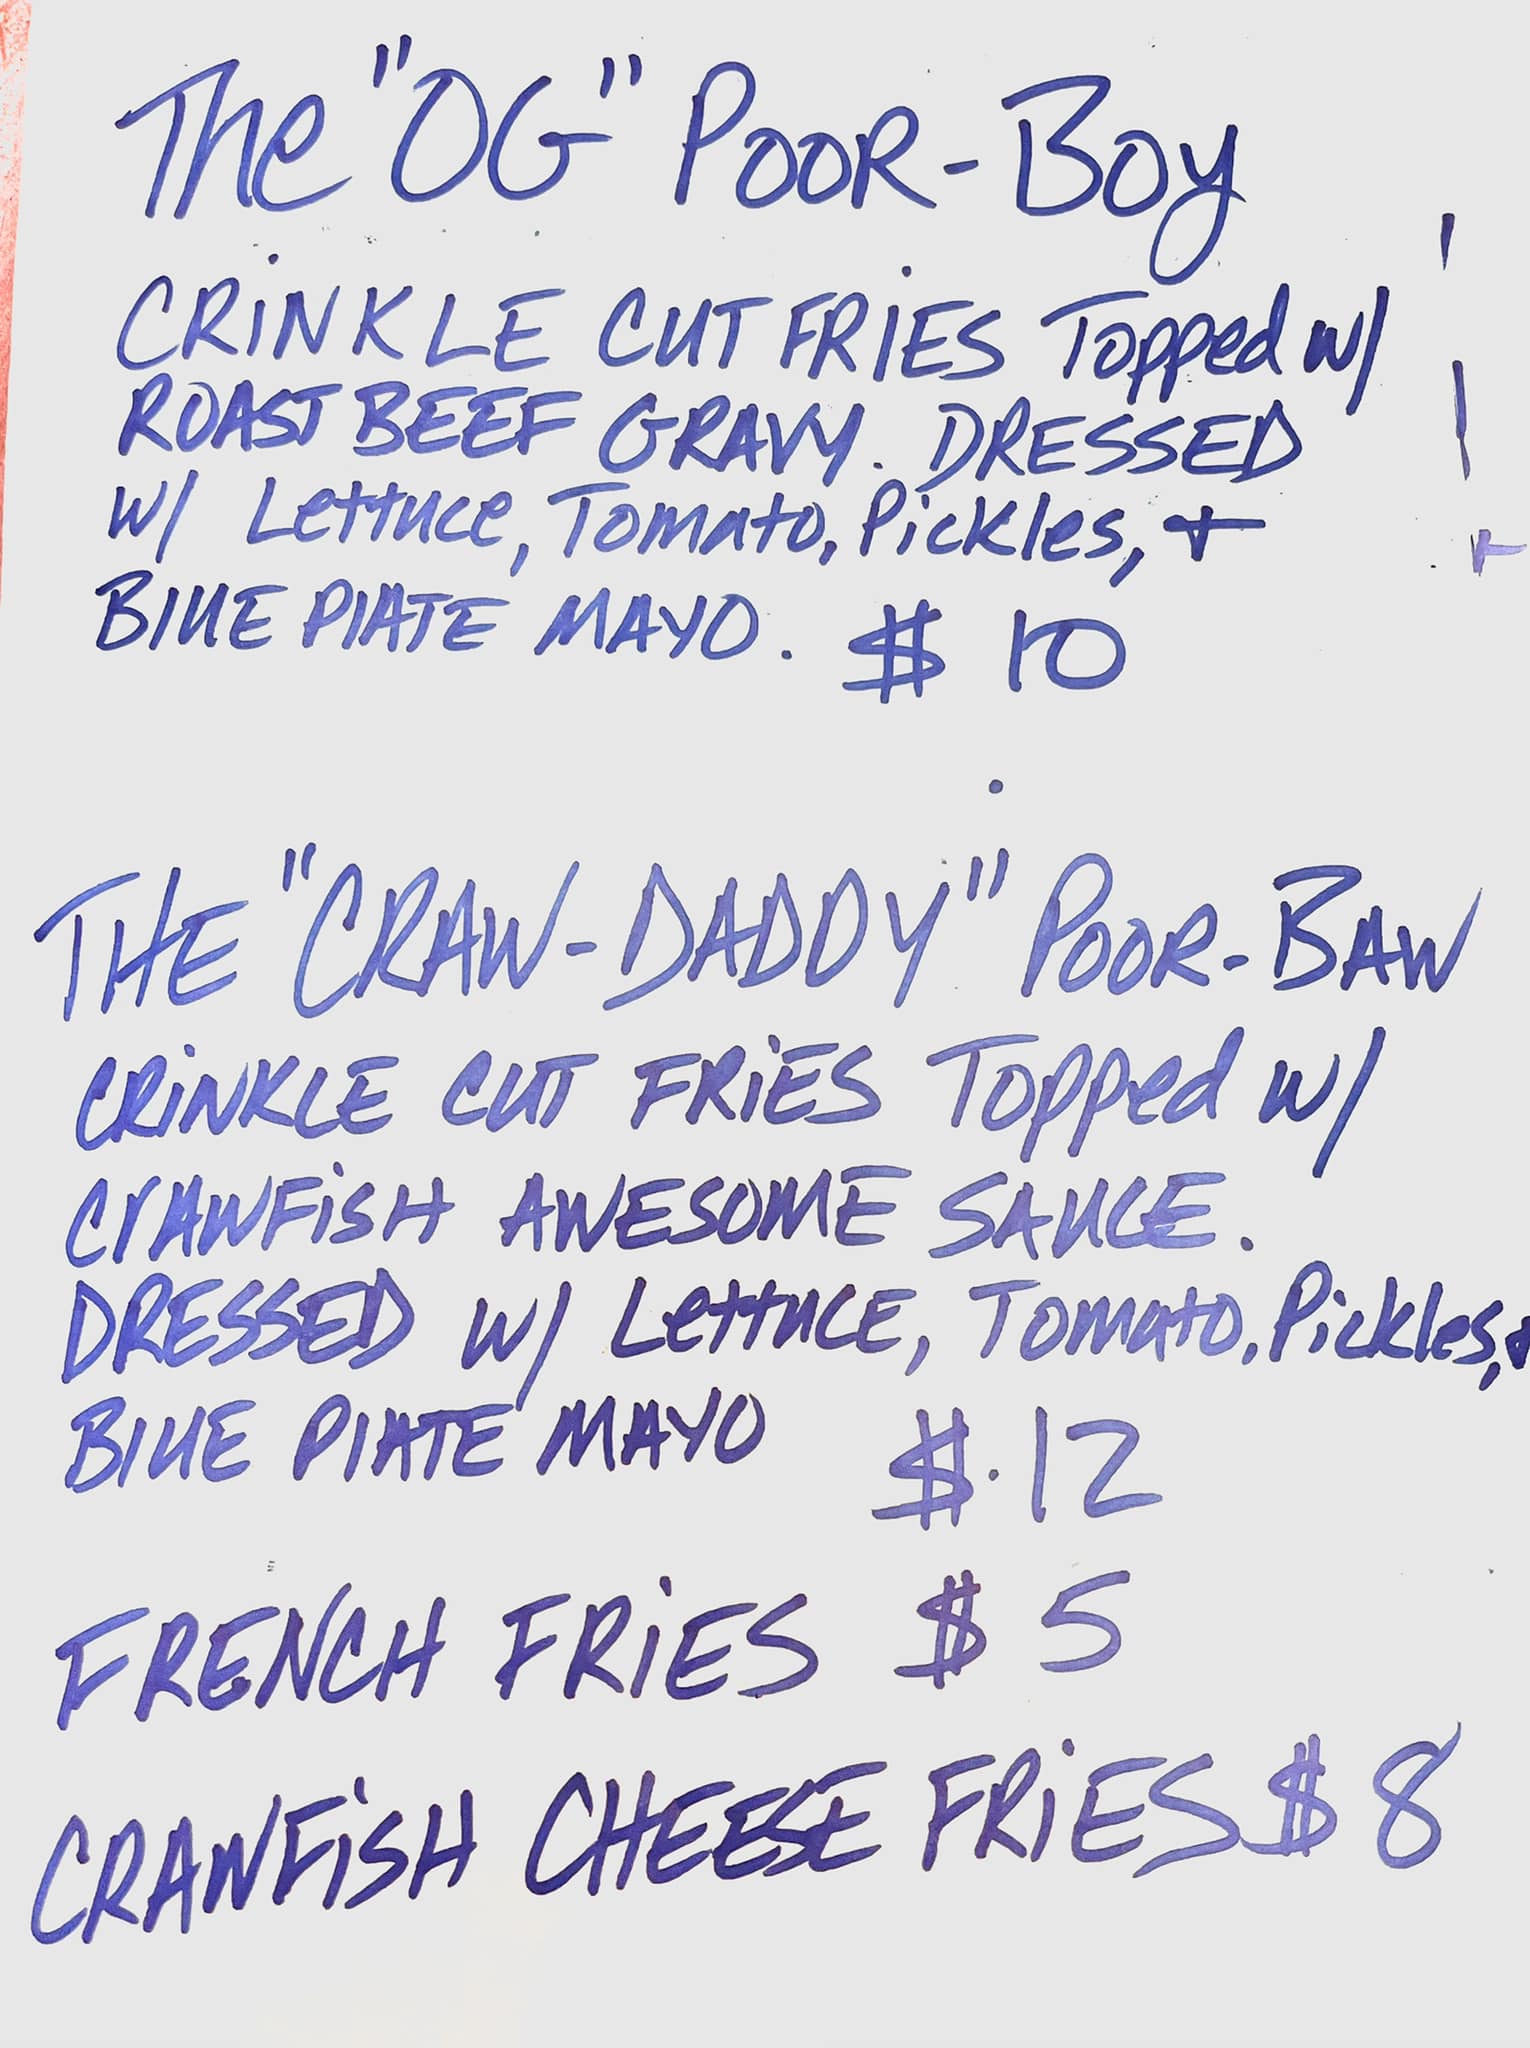 The "OG" POOR-BOY
CRINKLE CUT FRIES Topped w/
ROAST BEEF GRAVY. DRESSED
w/ Lettuce, Tomato, Pickles, +
BlUE PlATE MAYO. $ 10
THE "CRAW-DADDY" POOR-BAW
CRINKLE CUT FRIES Topped w/
CrAWFISH AWESOME SAUCE.
DRESSED w/ Lettuce, Tomato, Pickles, +
BlUE PlATE MAYO $.12
FRENCH FRIES $ 5
CRAWFISH CHEESE FRIES $ 8